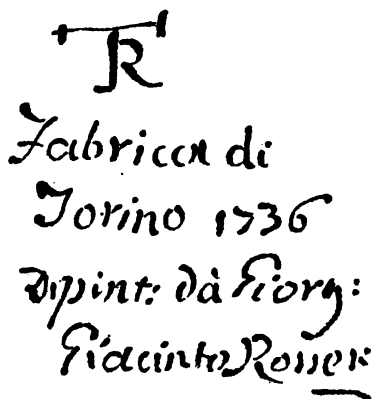 TR
Fabricca di
Torino 1736
Dipint: dà Giorg:
Giacinto Rosset: